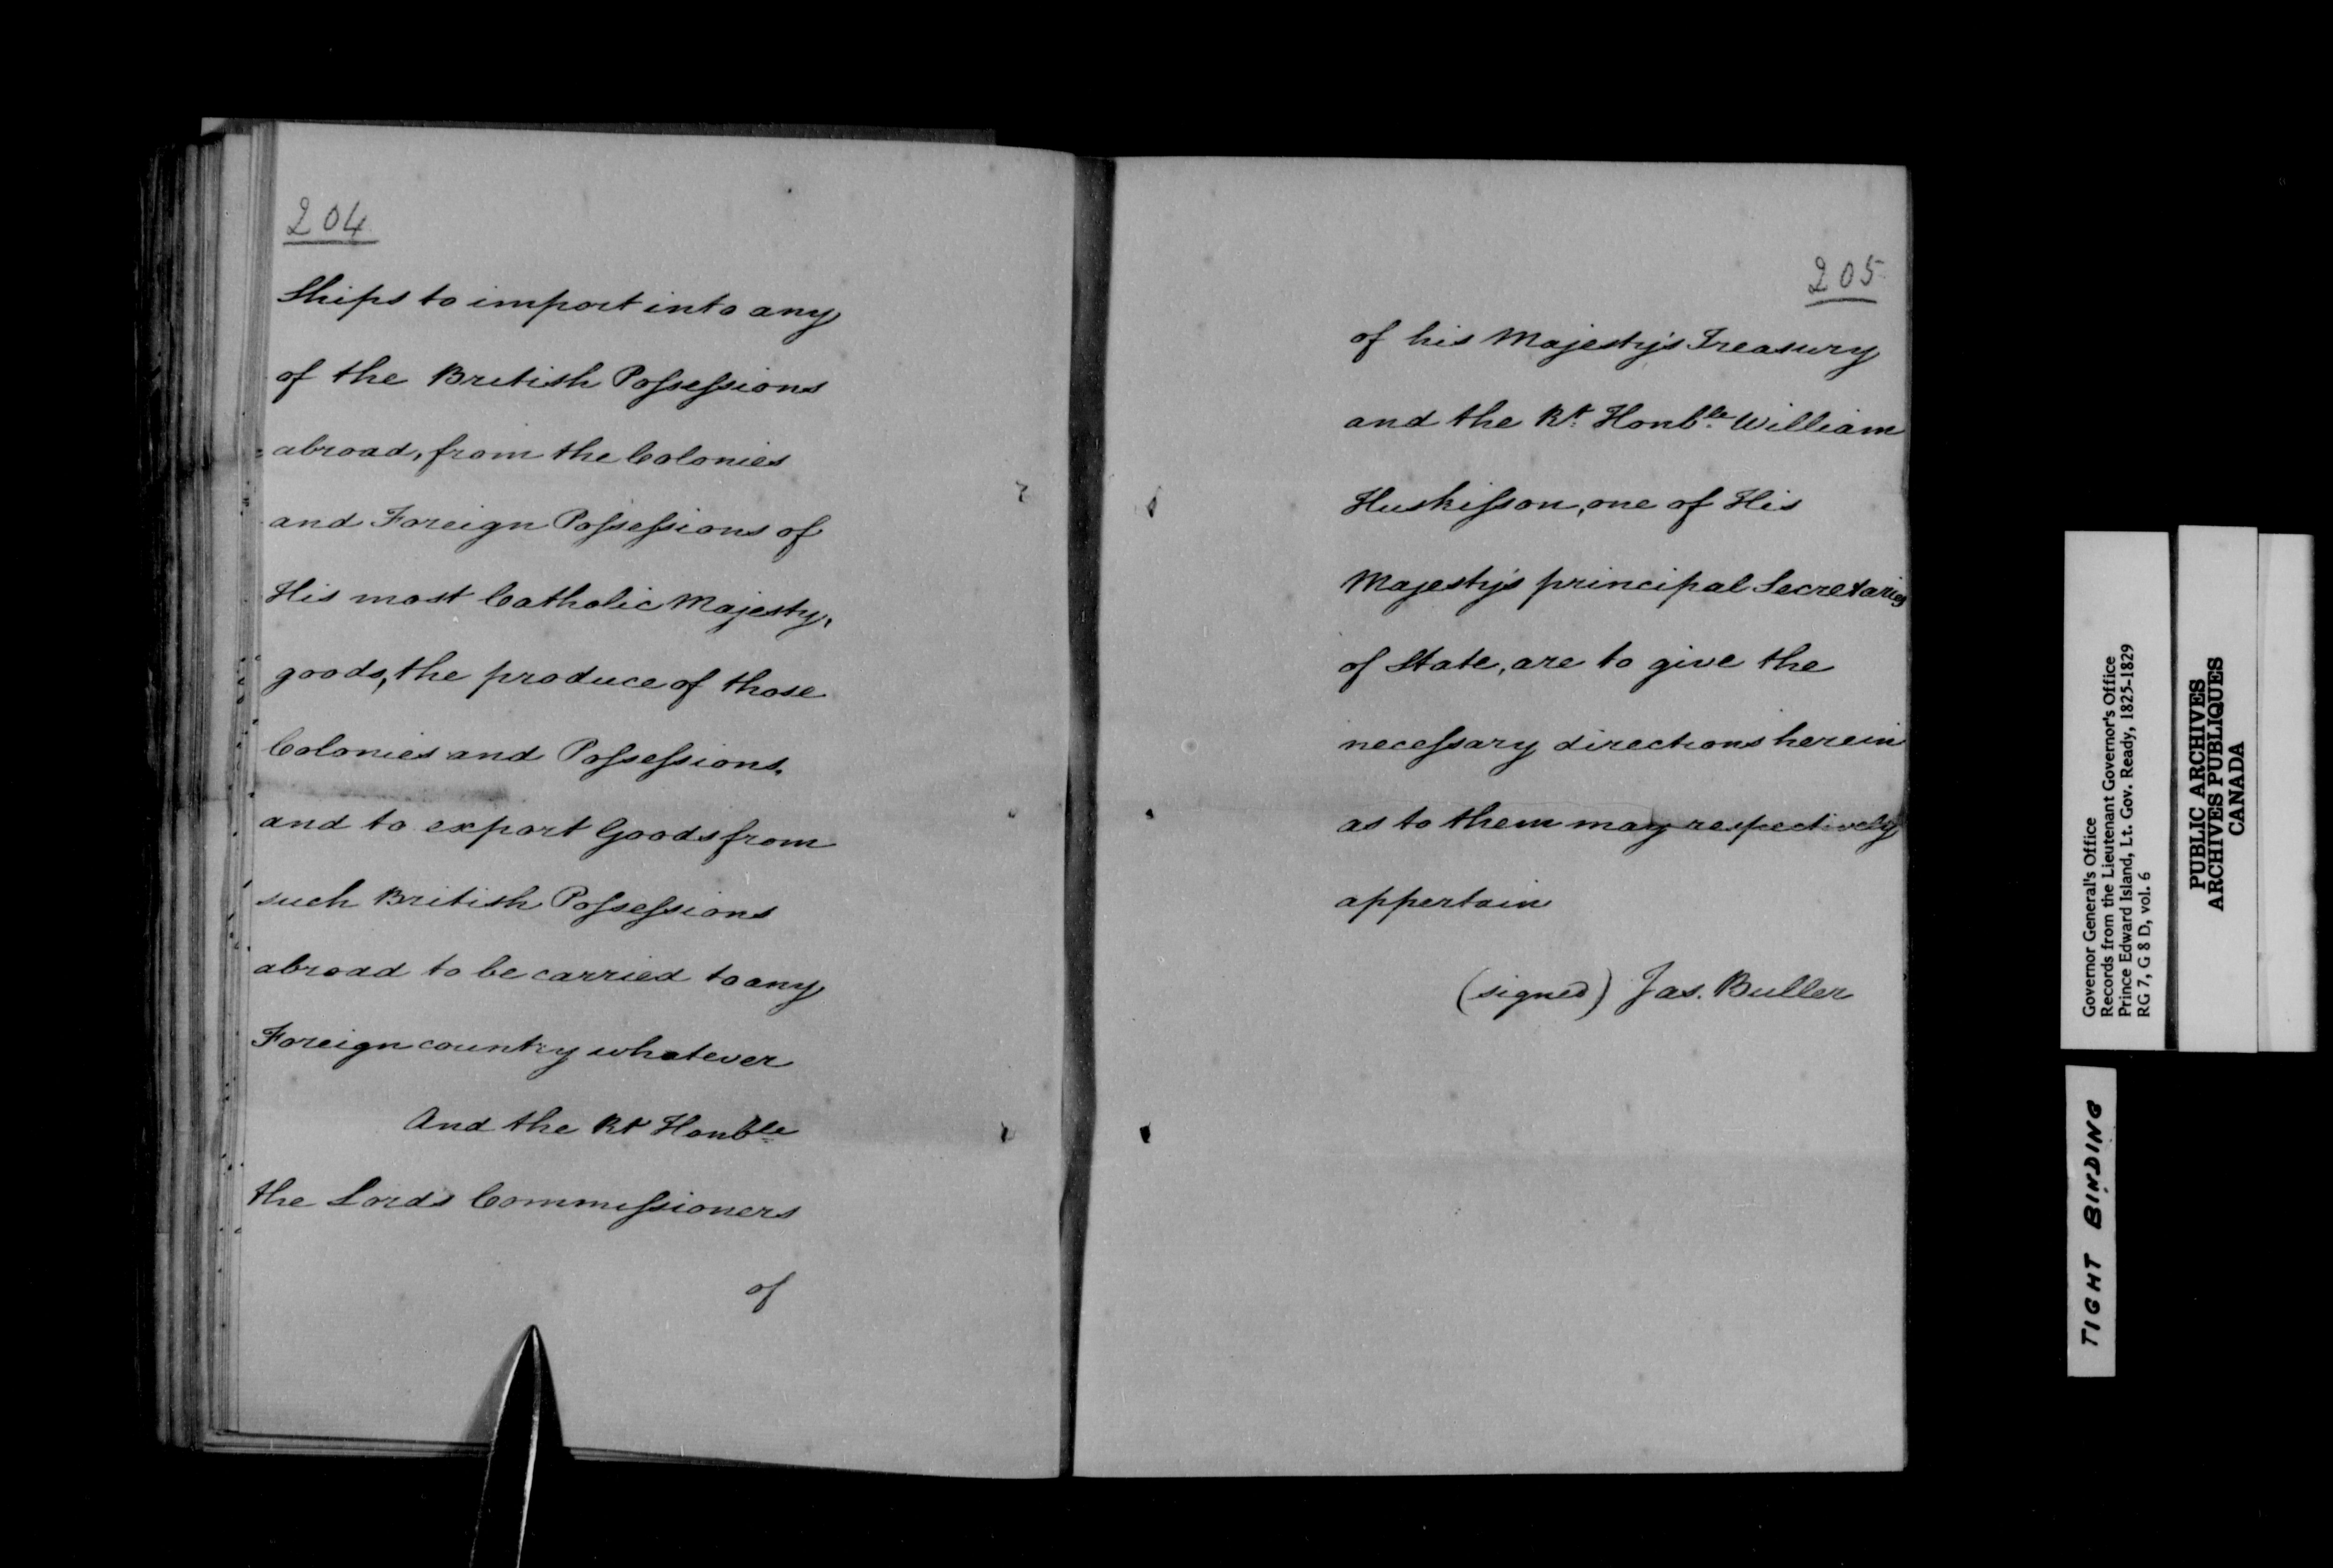 204
Ships to import into any
of the British Poſseſsions
abroad, from the Colonies
and Foreign Poſseſsions of
His most Catholic Majesty,
goods, the produce of those
Colonies and Poſseſsions,
and to export Goods from
such British Poſseſsions
abroad to be carried to any
Foreign country whatever
And the Rt Honble
the Lords Commiſsioners
of
205
of his Majesty's Treasury
and the Rt. Honble. William
Huskiſson, one of His
Majesty's principal Secretaries
of State, are to give the
neceſsary directions herein
as to them may respectively
appertain
(signed) Jas. Buller
Governor General's Office
Records from the Lieutenant Governor's Office
Prince Edward Island, Lt. Gov. Ready, 1825-1829
RG 7, G 8 D, vol. 6
PUBLIC ARCHIVES
ARCHIVES PUBLIQUES
CANADA
TIGHT BINDING